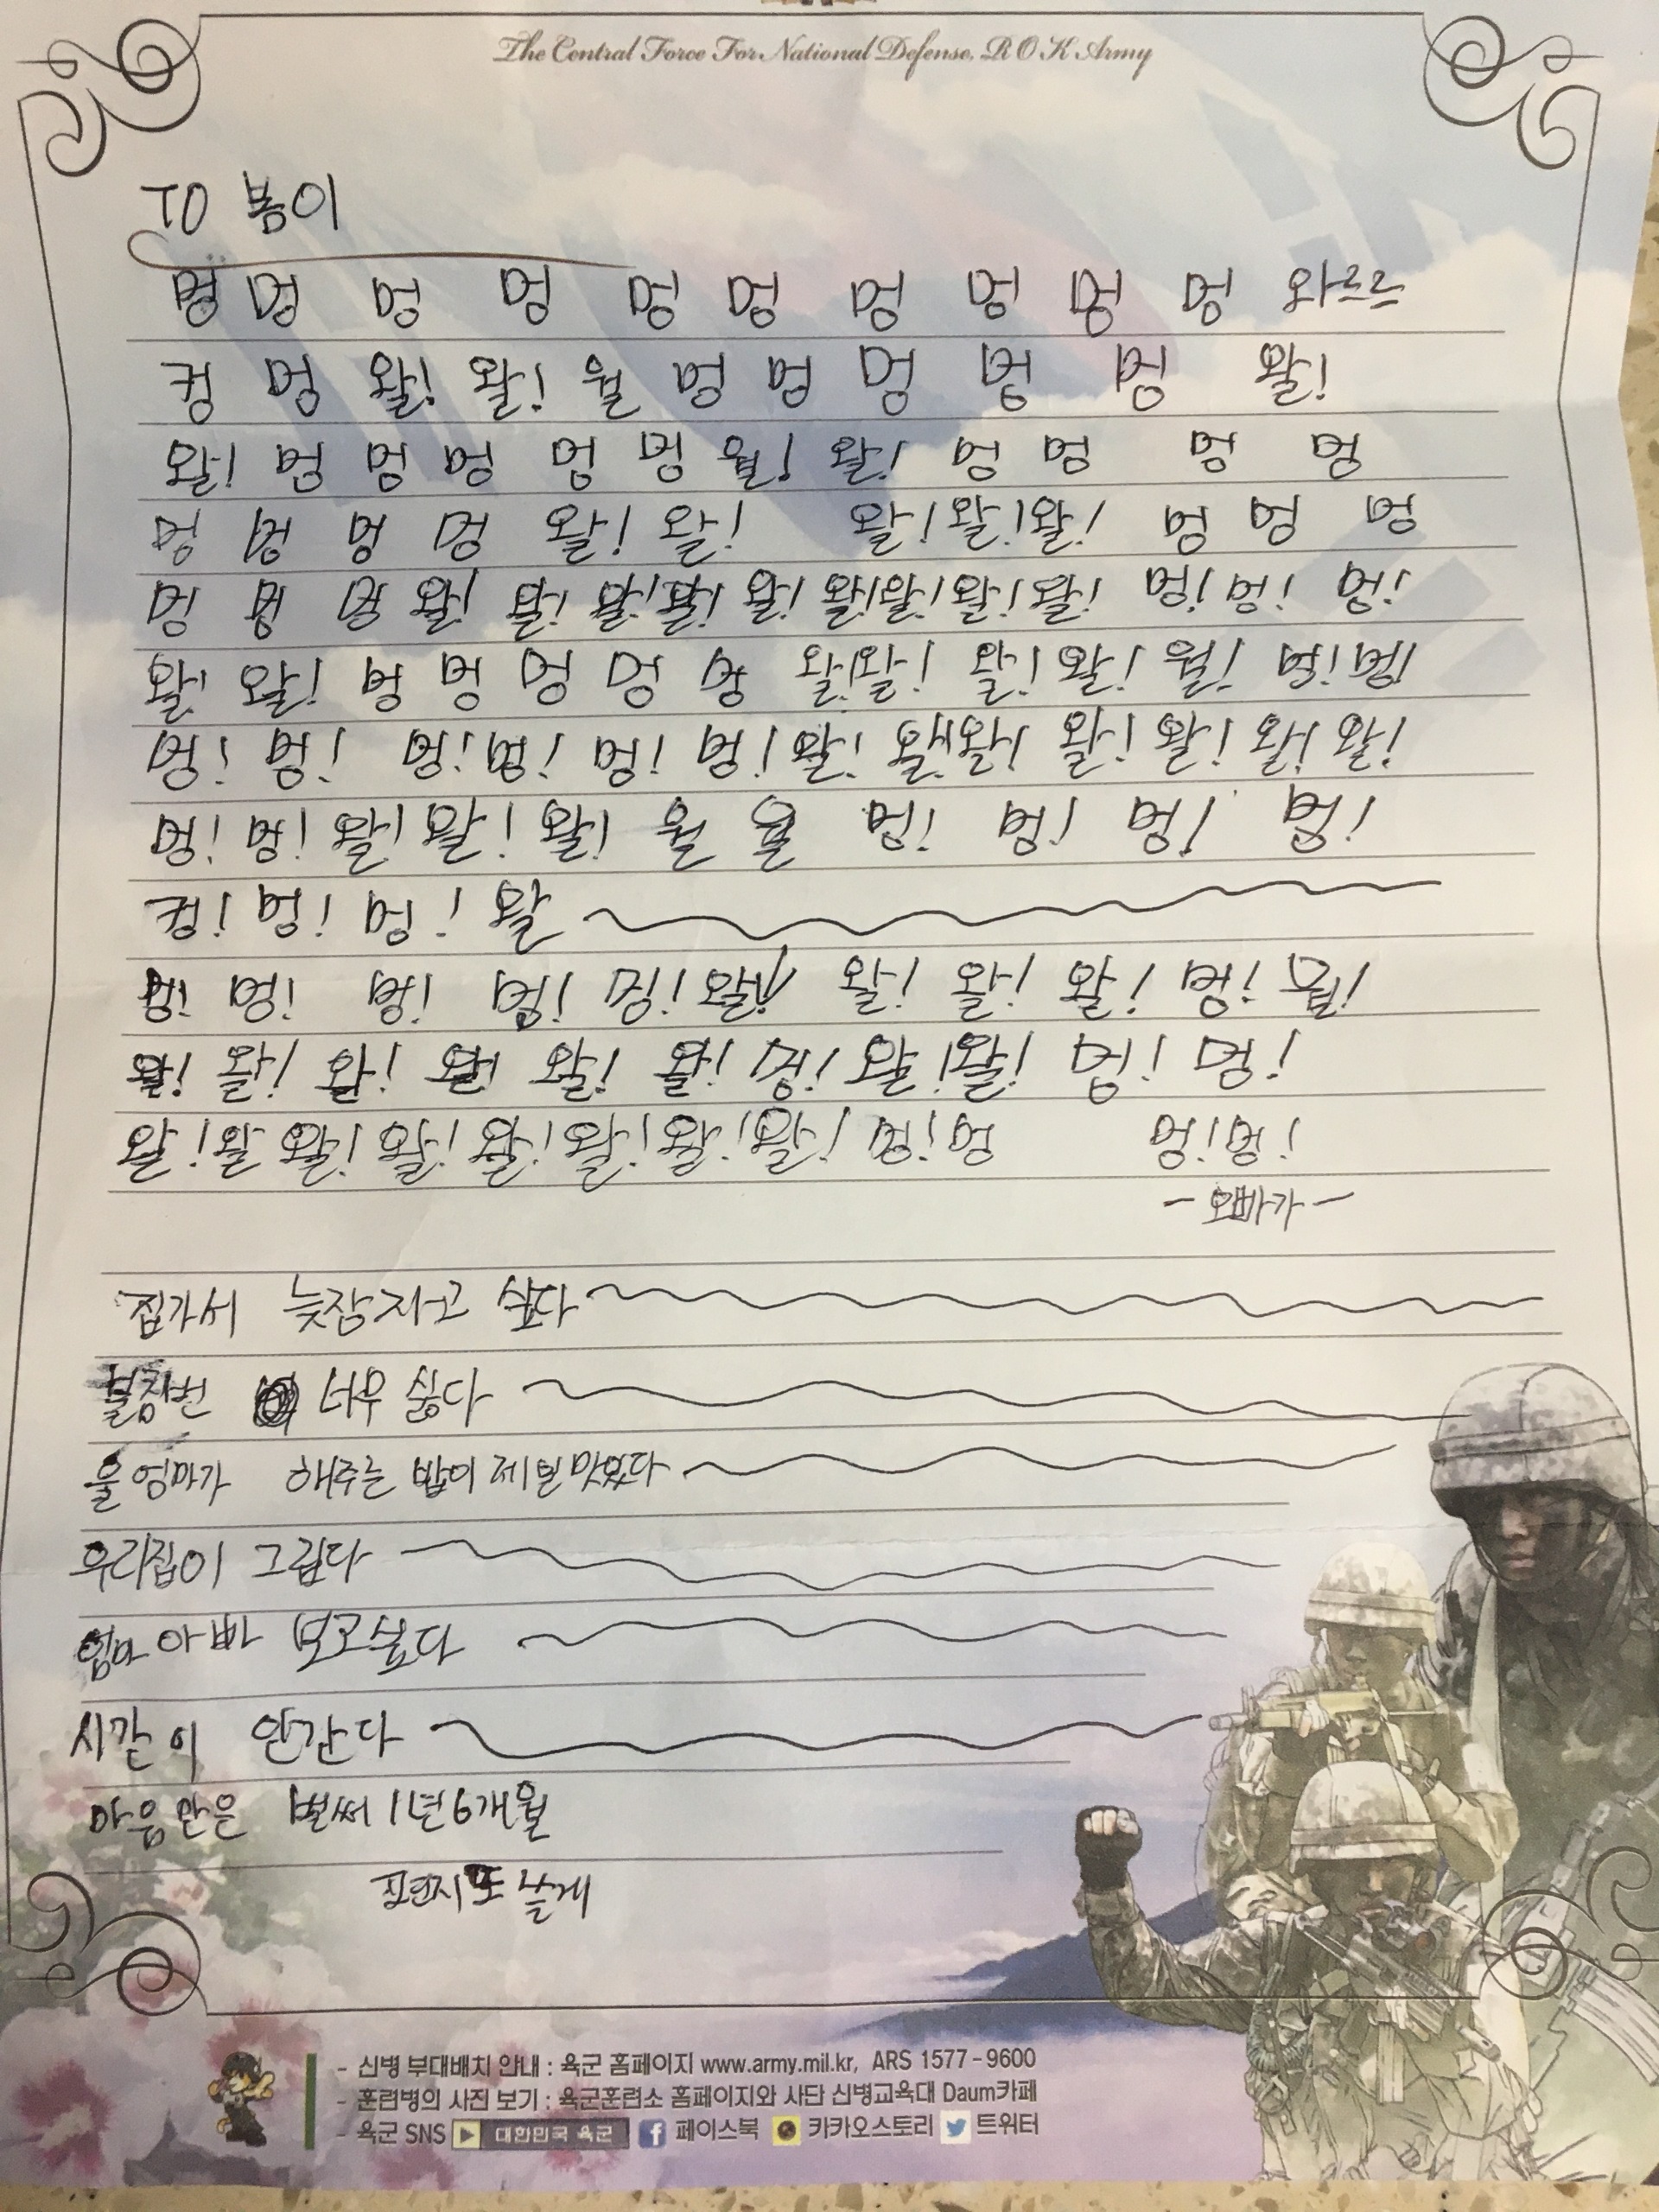 The Central Force For National Defense, R O K Army
TO 봄이
멍 멍 멍 멍 멍 멍 멍 멍 멍 멍 와르르
컹 멍 왈! 왈! 월 멍 멍 멍 멍 멍 왈!
왈! 멍 멍 멍 멍 멍 월! 왈! 멍 멍 멍 멍
멍 멍 멍 멍 왈! 왈! 왈! 왈! 왈! 멍 멍 멍
멍 멍 멍 왈! 왈! 왈! 왈! 왈! 왈! 왈! 왈! 왈! 멍! 멍! 멍!
왈! 왈! 멍 멍 멍 멍 멍 왈! 왈! 왈! 왈! 월! 멍! 멍!
멍! 멍! 멍! 멍! 멍! 멍! 왈! 왈! 왈! 왈! 왈! 왈! 왈!
멍! 멍! 왈! 왈! 왈! 월 멍! 멍! 멍! 멍!
컹! 멍! 멍! 왈
멍! 멍! 멍! 멍! 멍! 왈! 왈! 왈! 왈! 멍!
왈! 왈! 왈! 왈! 왈! 왈! 멍! 왈! 왈! 멍! 멍!
왈! 왈 왈! 왈! 왈! 왈! 왈! 왈! 멍! 멍 멍! 멍!
- 오빠가 -
집가서 늦잠자고 싶다
불침번 너무 싫다
울 엄마가 해주는 밥이 제일 맛있다
우리집이 그립다
엄마 아빠 보고싶다
시간이 안간다
마음만은 벌써 1년6개월
편지 또 쓸게
- 신병 부대배치 안내 : 육군 홈페이지 www.army.mil.kr, ARS 1577-9600
- 훈련병의 사진 보기 : 육군훈련소 홈페이지와 사단 신병교육대 Daum카페
- 육군 SNS 대한민국 육군 f 페이스북 카카오스토리 트위터